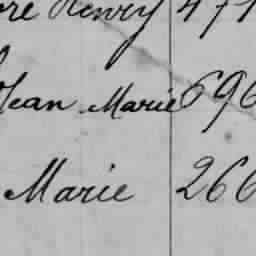 re Henry 471
Jean Marie 696
Marie 266